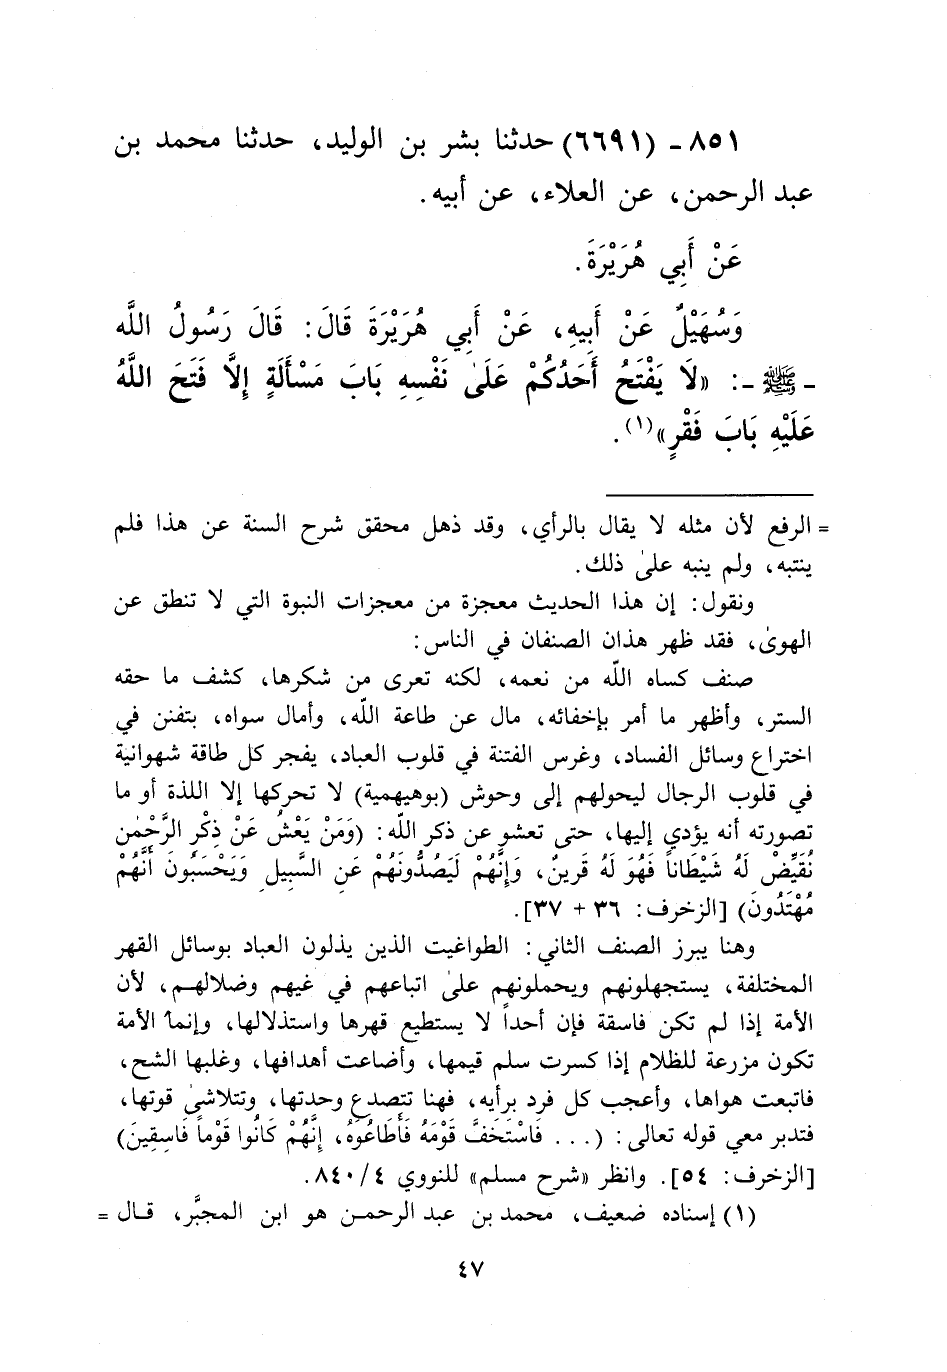 ٨٥١ - (٦٦٩١) حدثنا بشر بن الوليد، حدثنا محمد بن
عبد الرحمن، عن العلاء، عن أبيه.
عَنْ أَبِي هُرَيْرَةَ.
وَسُهَيْلٌ عَنْ أَبِيهِ، عَنْ أَبِي هُرَيْرَةَ قَالَ: قَالَ رَسُولُ اللَّه
- ﷺ -: «لَا يَفْتَحُ أَحَدُكُمْ عَلَىٰ نَفْسِهِ بَابَ مَسْأَلَةٍ إِلَّا فَتَحَ اللَّهُ
عَلَيْهِ بَابَ فَقْرٍ»(١).
= الرفع لأن مثله لا يقال بالرأي، وقد ذهل محقق شرح السنة عن هذا فلم
ينتبه، ولم ينبه علىٰ ذلك.
ونقول: إن هذا الحديث معجزة من معجزات النبوة التي لا تنطق عن
الهوىٰ، فقد ظهر هذان الصنفان في الناس:
صنف كساه اللّه من نعمه، لكنه تعرى من شكرها، كشف ما حقه
الستر، وأظهر ما أمر بإخفائه، مال عن طاعة اللّه، وأمال سواه، يتفنن في
اختراع وسائل الفساد، وغرس الفتنة في قلوب العباد، يفجر كل طاقة شهوانية
في قلوب الرجال ليحولهم إلى وحوش (بوهيهمية) لا تحركها إلا اللذة أو ما
تصورته أنه يؤدي إليها، حتى تعشو عن ذكر اللّه: (وَمَنْ يَعْشُ عَنْ ذِكْرِ الرَّحْمٰنِ
نُقَيِّضْ لَهُ شَيْطَاناً فَهُوَ لَهُ قَرينٌ، وَإِنَّهُمْ لَيَصُدُّونَهُمْ عَنِ السَّبِيلِ وَيَحْسَبُونَ أَنَّهُمْ
مُهْتَدُونَ) [الزخرف: ٣٦ + ٣٧].
وهنا يبرز الصنف الثاني: الطواغيت الذين يذلون العباد بوسائل القهر
المختلفة، يستجهلونهم ويحملونهم علىٰ اتباعهم في غيهم وضلالهم، لأن
الأمة إذا لم تكن فاسقة فإن أحداً لا يستطيع قهرها واستذلالها، وإنما الأمة
تكون مزرعة للظلام إذا كسرت سلم قيمها، وأضاعت أهدافها، وغلبها الشح،
فاتبعت هواها، وأعجب كل فرد برأيه، فهنا تتصدع وحدتها، وتتلاشىٰ قوتها،
فتدبر معي قوله تعالى: (... فَاسْتَخَفَّ قَوْمَهُ فَأَطَاعُوهُ، إِنَّهُمْ كَانُوا قَوْماً فَاسِقِينَ)
[الزخرف: ٥٤]. وانظر «شرح مسلم» للنووي ٤/ ٨٤٠.
(١) إسناده ضعيف، محمد بن عبد الرحمن هو ابن المجبَّر، قال =
٤٧